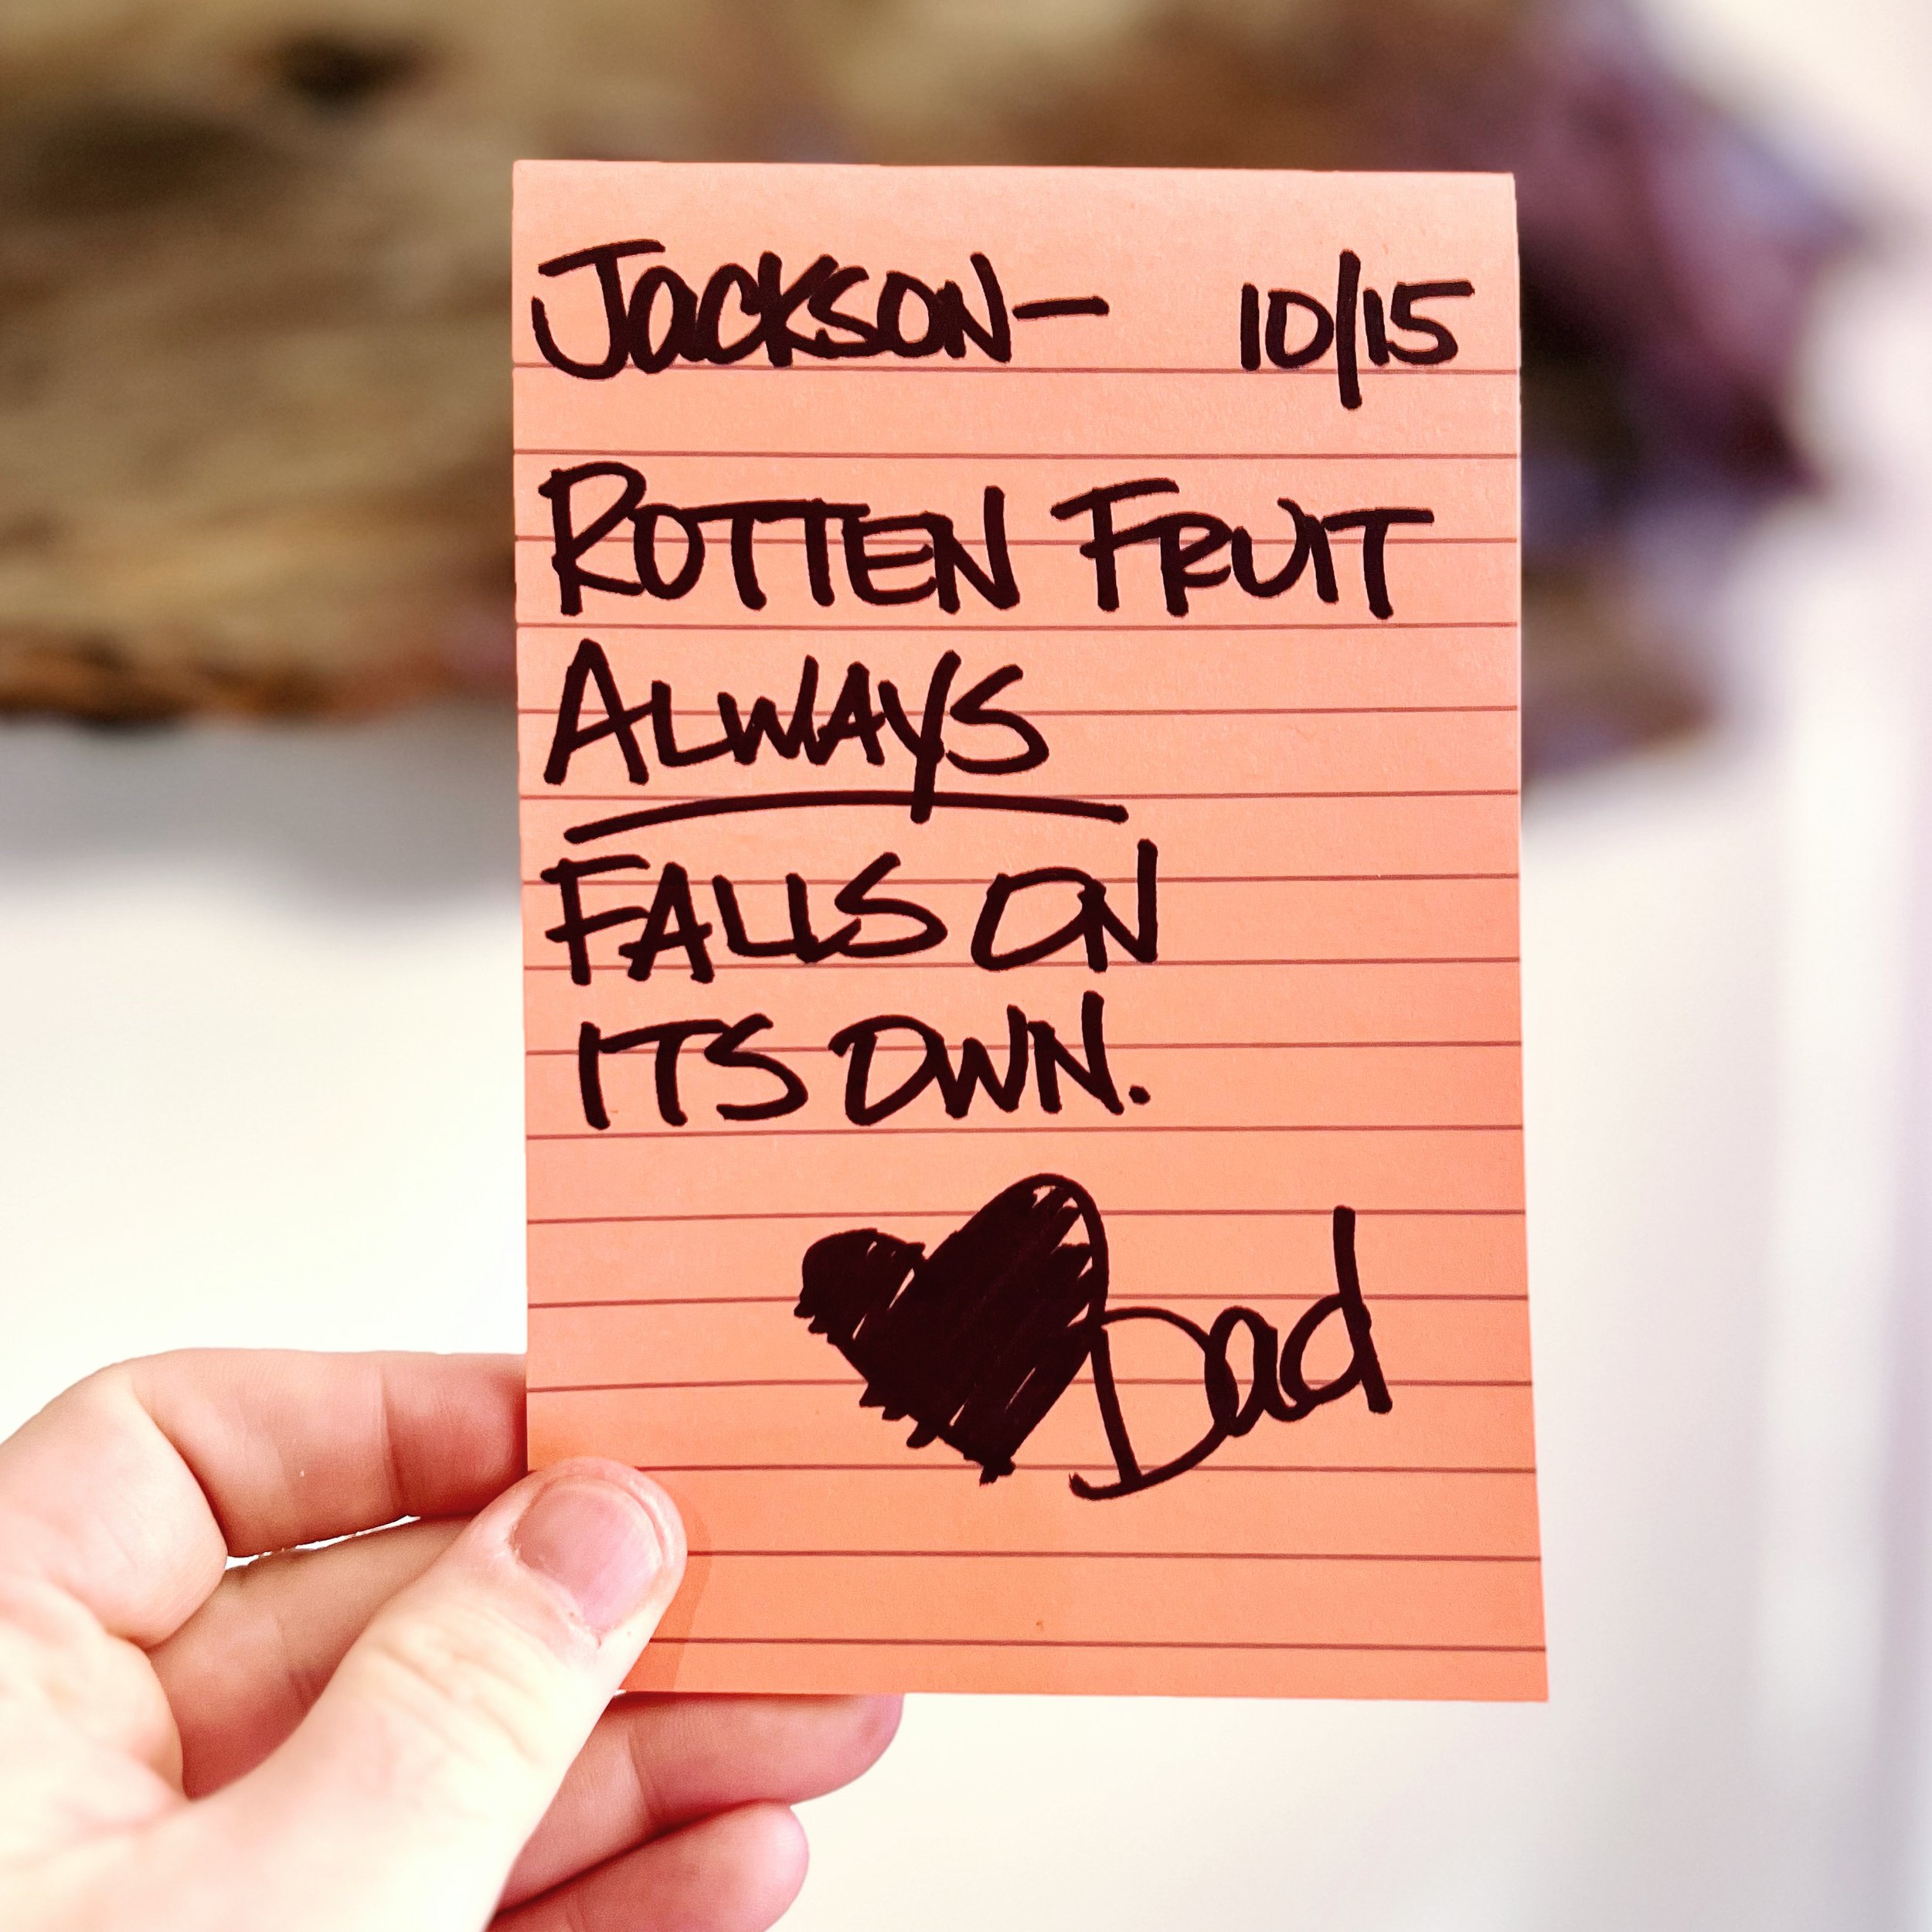 Jackson— 10/15
ROTTEN FRUIT
ALWAYS
FALLS ON
ITS OWN.
Dad